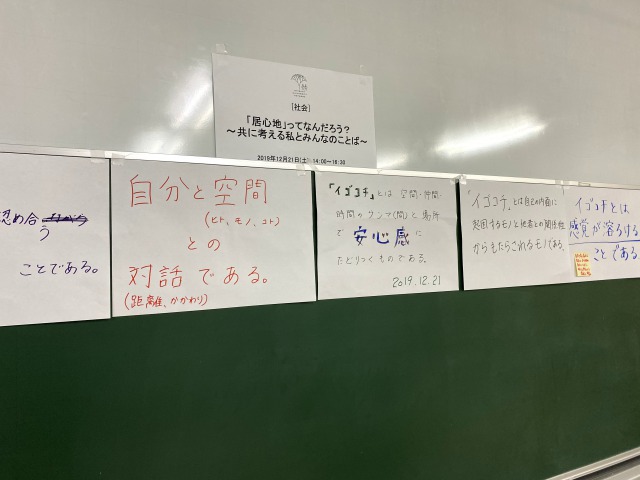 [社会]
「居心地」ってなんだろう?
~共に考える私とみんなのことば~
2019年12月21日(土) 14:00~16:30
認め合
う
ことである。
自分と空間
(ヒト、モノ、コト)
との
対話である。
(距離、かかわり)
「イゴコチ」とは 空間・仲間・
時間のサンマ(間)と場所
で 安心感に
たどりつくものである。
2019.12.21
「イゴコチ」とは自己の内面に
起因するモノと他者との関係性
からもたらされるモノである。
イゴコチとは
感覚が溶ろける
ことである。